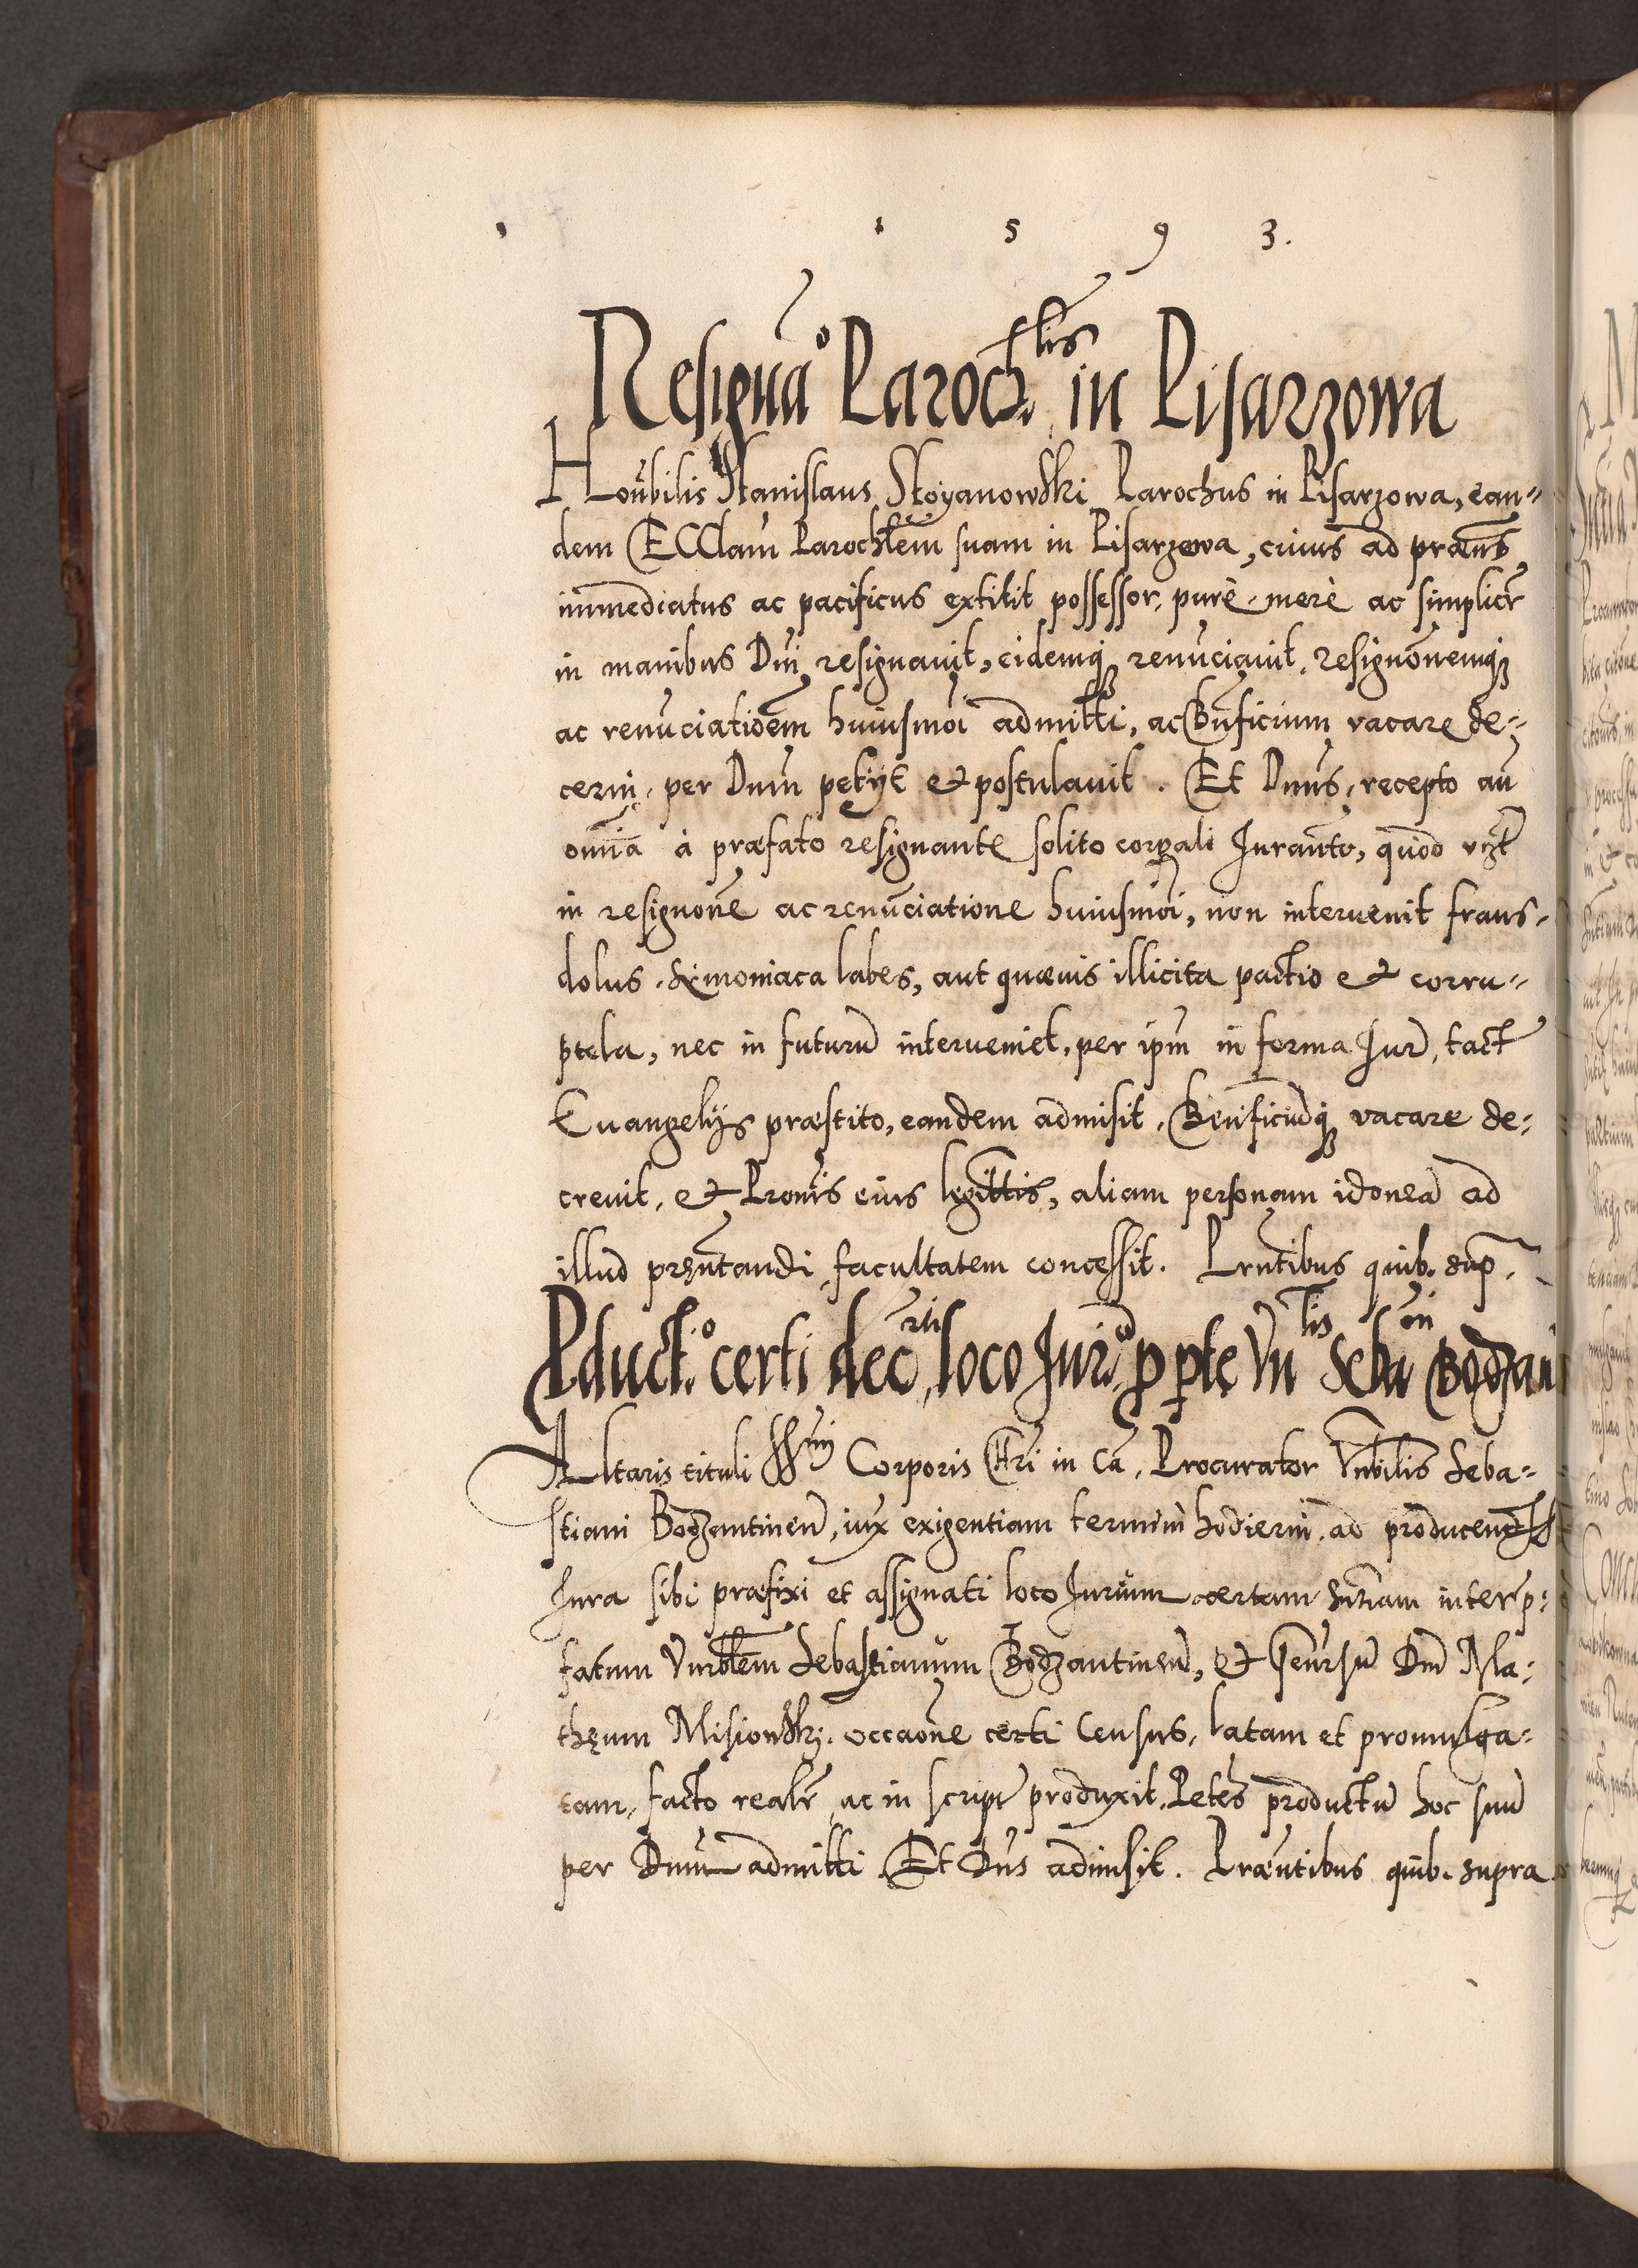 1 5 9 3.
Resignao Parochlis in Pisarzowa
Honbilis Stanislaus Stoyanowski Parochus in Pisarzowa, ean=
dem ECClam Parochlem suam in Pisarzowa, cuius ad praens
immediatus ac pacificus extitit possessor, purè, merè ac simplicr
in manibus Dni resignauit, eidemq renuciauit, resignonemq
ac renuciatioem huiusmoi admitti, ac Bnficium vacare de=
cerni, per Dnum petijt et postulauit. Et Dnus, recepto an
omnia à praefato resignante solito corpali Iuranto, quod vzt
in resignone ac renunciatione huiusmoi, non interuenit fraus,
dolus, Simoniaca labes, aut quaeuis illicita pactio et corru=
ptela, nec in futurum interueniet, per ipm in forma Iur, tact
Euangelijs praestito, eandem admisit, Benficiumq vacare de=
creuit, et Pronis eius legittis, aliam personam idonea ad
illud prentandi facultatem concessit. Prntibus quib. sup.
Pducto certi decrti loco Iuriu p pte Vnlis Sebani Bodzan
Altaris tituli SSmi Corporis Chri in Ca, Procurator Vnbilis Seba=
stiani Bodzantinen, iux exigentiam termini hodierni, ad producend
Iura sibi praefixi et assignati loco Iurium certam sntiam inter p=
fatum Vnrblem Sebastianum Bodzantinen, et Gnrsum Dnm Ma=
theum Misiowski, occaone certi Census, latam et promulga=
tam, facto realr ac in script produxit, Petes productu hoc suu
per Dnum admitti. Et Dns admisit. Praentibus quib. supra